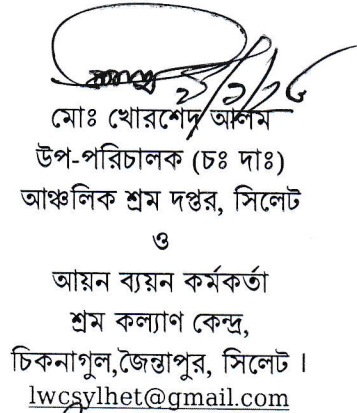 মোঃ খোরশেদ আলম
উপ-পরিচালক (চঃ দাঃ)
আঞ্চলিক শ্রম দপ্তর, সিলেট
ও
আয়ন ব্যয়ন কর্মকর্তা
শ্রম কল্যাণ কেন্দ্র,
চিকনাগুল,জৈন্তাপুর, সিলেট ।
lwcsylhet@gmail.com